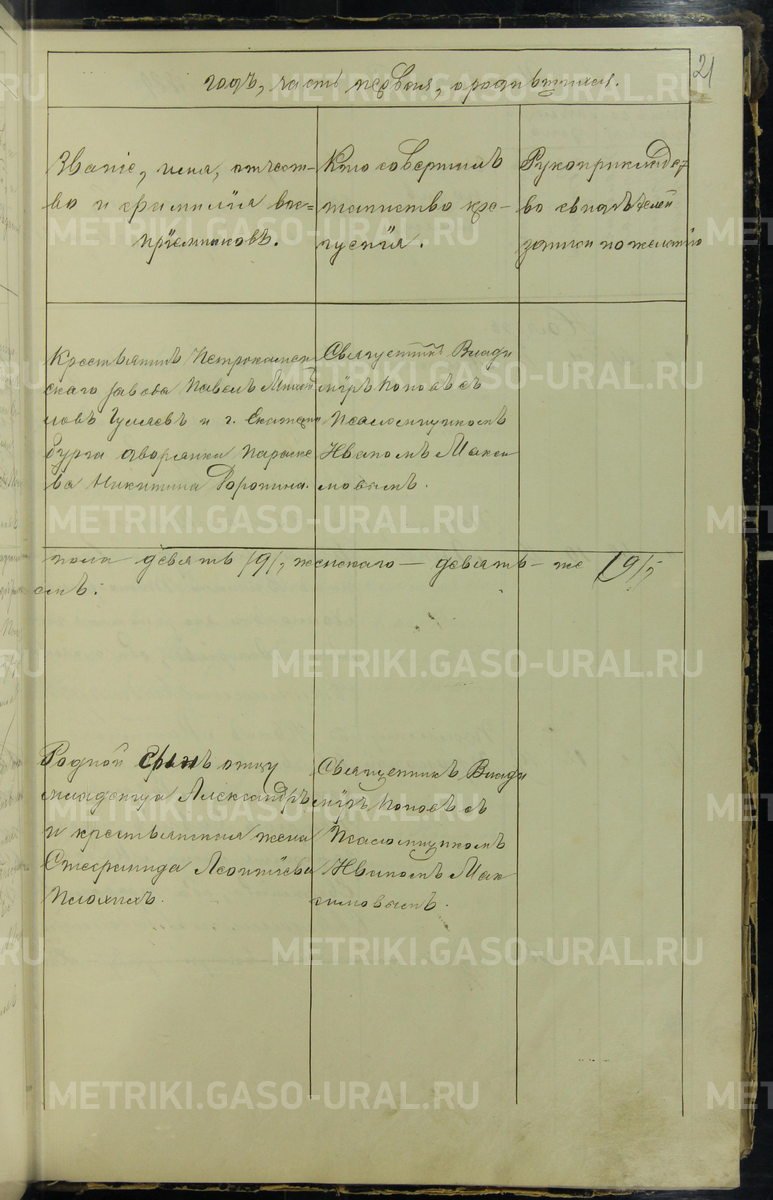 21
годъ, часть первая, о родившихся.
Званіе, имя, отчест-
во и фамилія вос-
пріемниковъ.
Кто совершалъ
таинство кре-
щенія.
Рукоприкладст
во свидѣтелей
записи по желанію
Крестьянинъ Петрокамен
скаго завода Павелъ Михай
ловъ Гуляевъ и г. Екатерин
бурга дворянка Параске
ва Никитина Воронина.
Священникъ Влади
міръ Поповъ съ
Псаломщикомъ
Иваномъ Макси
мовымъ.
пола девять /9/, женскаго — девять — же /9/,
Родной сынъ отцу
младенца Александръ
и крестьянская жена
Стефанида Леонтіева
Плохихъ.
Священникъ Влади
міръ Поповъ съ
Псаломщикомъ
Иваномъ Мак
симовымъ.
METRIKI.GASO-URAL.RU